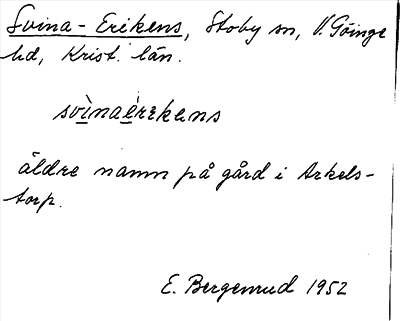 Svina-Erikens, Stoby sn, V. Göinge
hd, Krist. län.
svìnaèrikens
äldre namn på gård i Arkels-
torp.
E. Bergenrud 1952